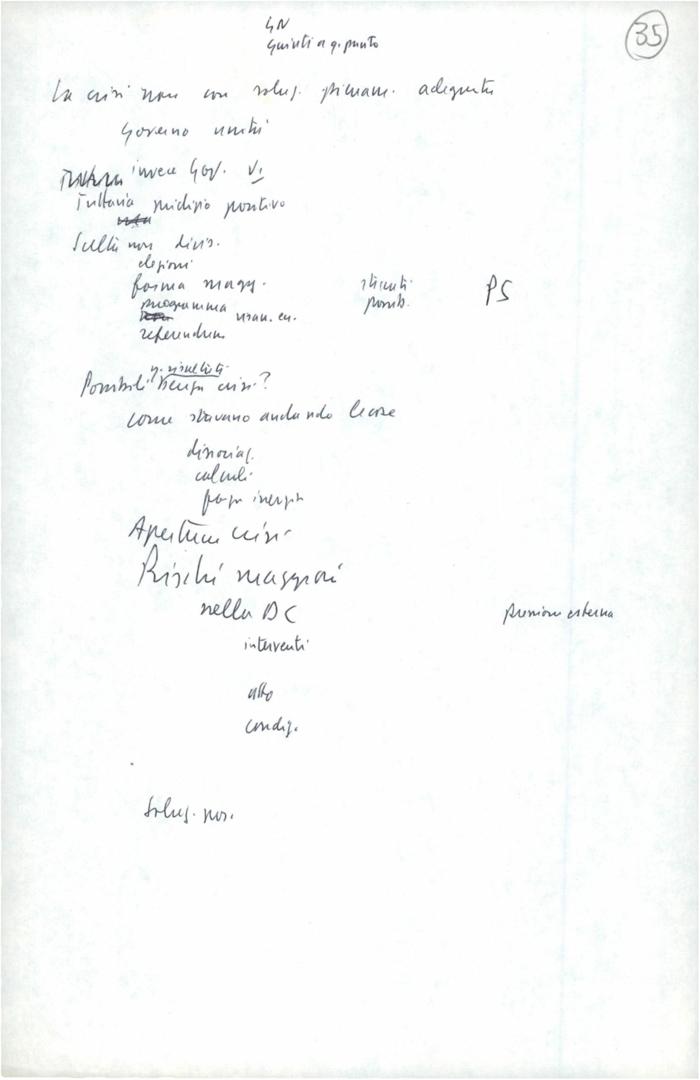 35
GN
Giunti a q. punto
La crisi non con soluz. pienam. adeguata
Governo unità
invece Gov. V.
Tuttavia giudizio positivo
Scelta non divis.
elezioni
forma magg.
programma
referendum
PS
Possibili risultati senza crisi?
come stavano andando le cose
dissociaz.
calcoli
Apertura crisi
Rischi maggiori
nella DC
pressione esterna
interventi
alto
condiz.
Soluz. pos.